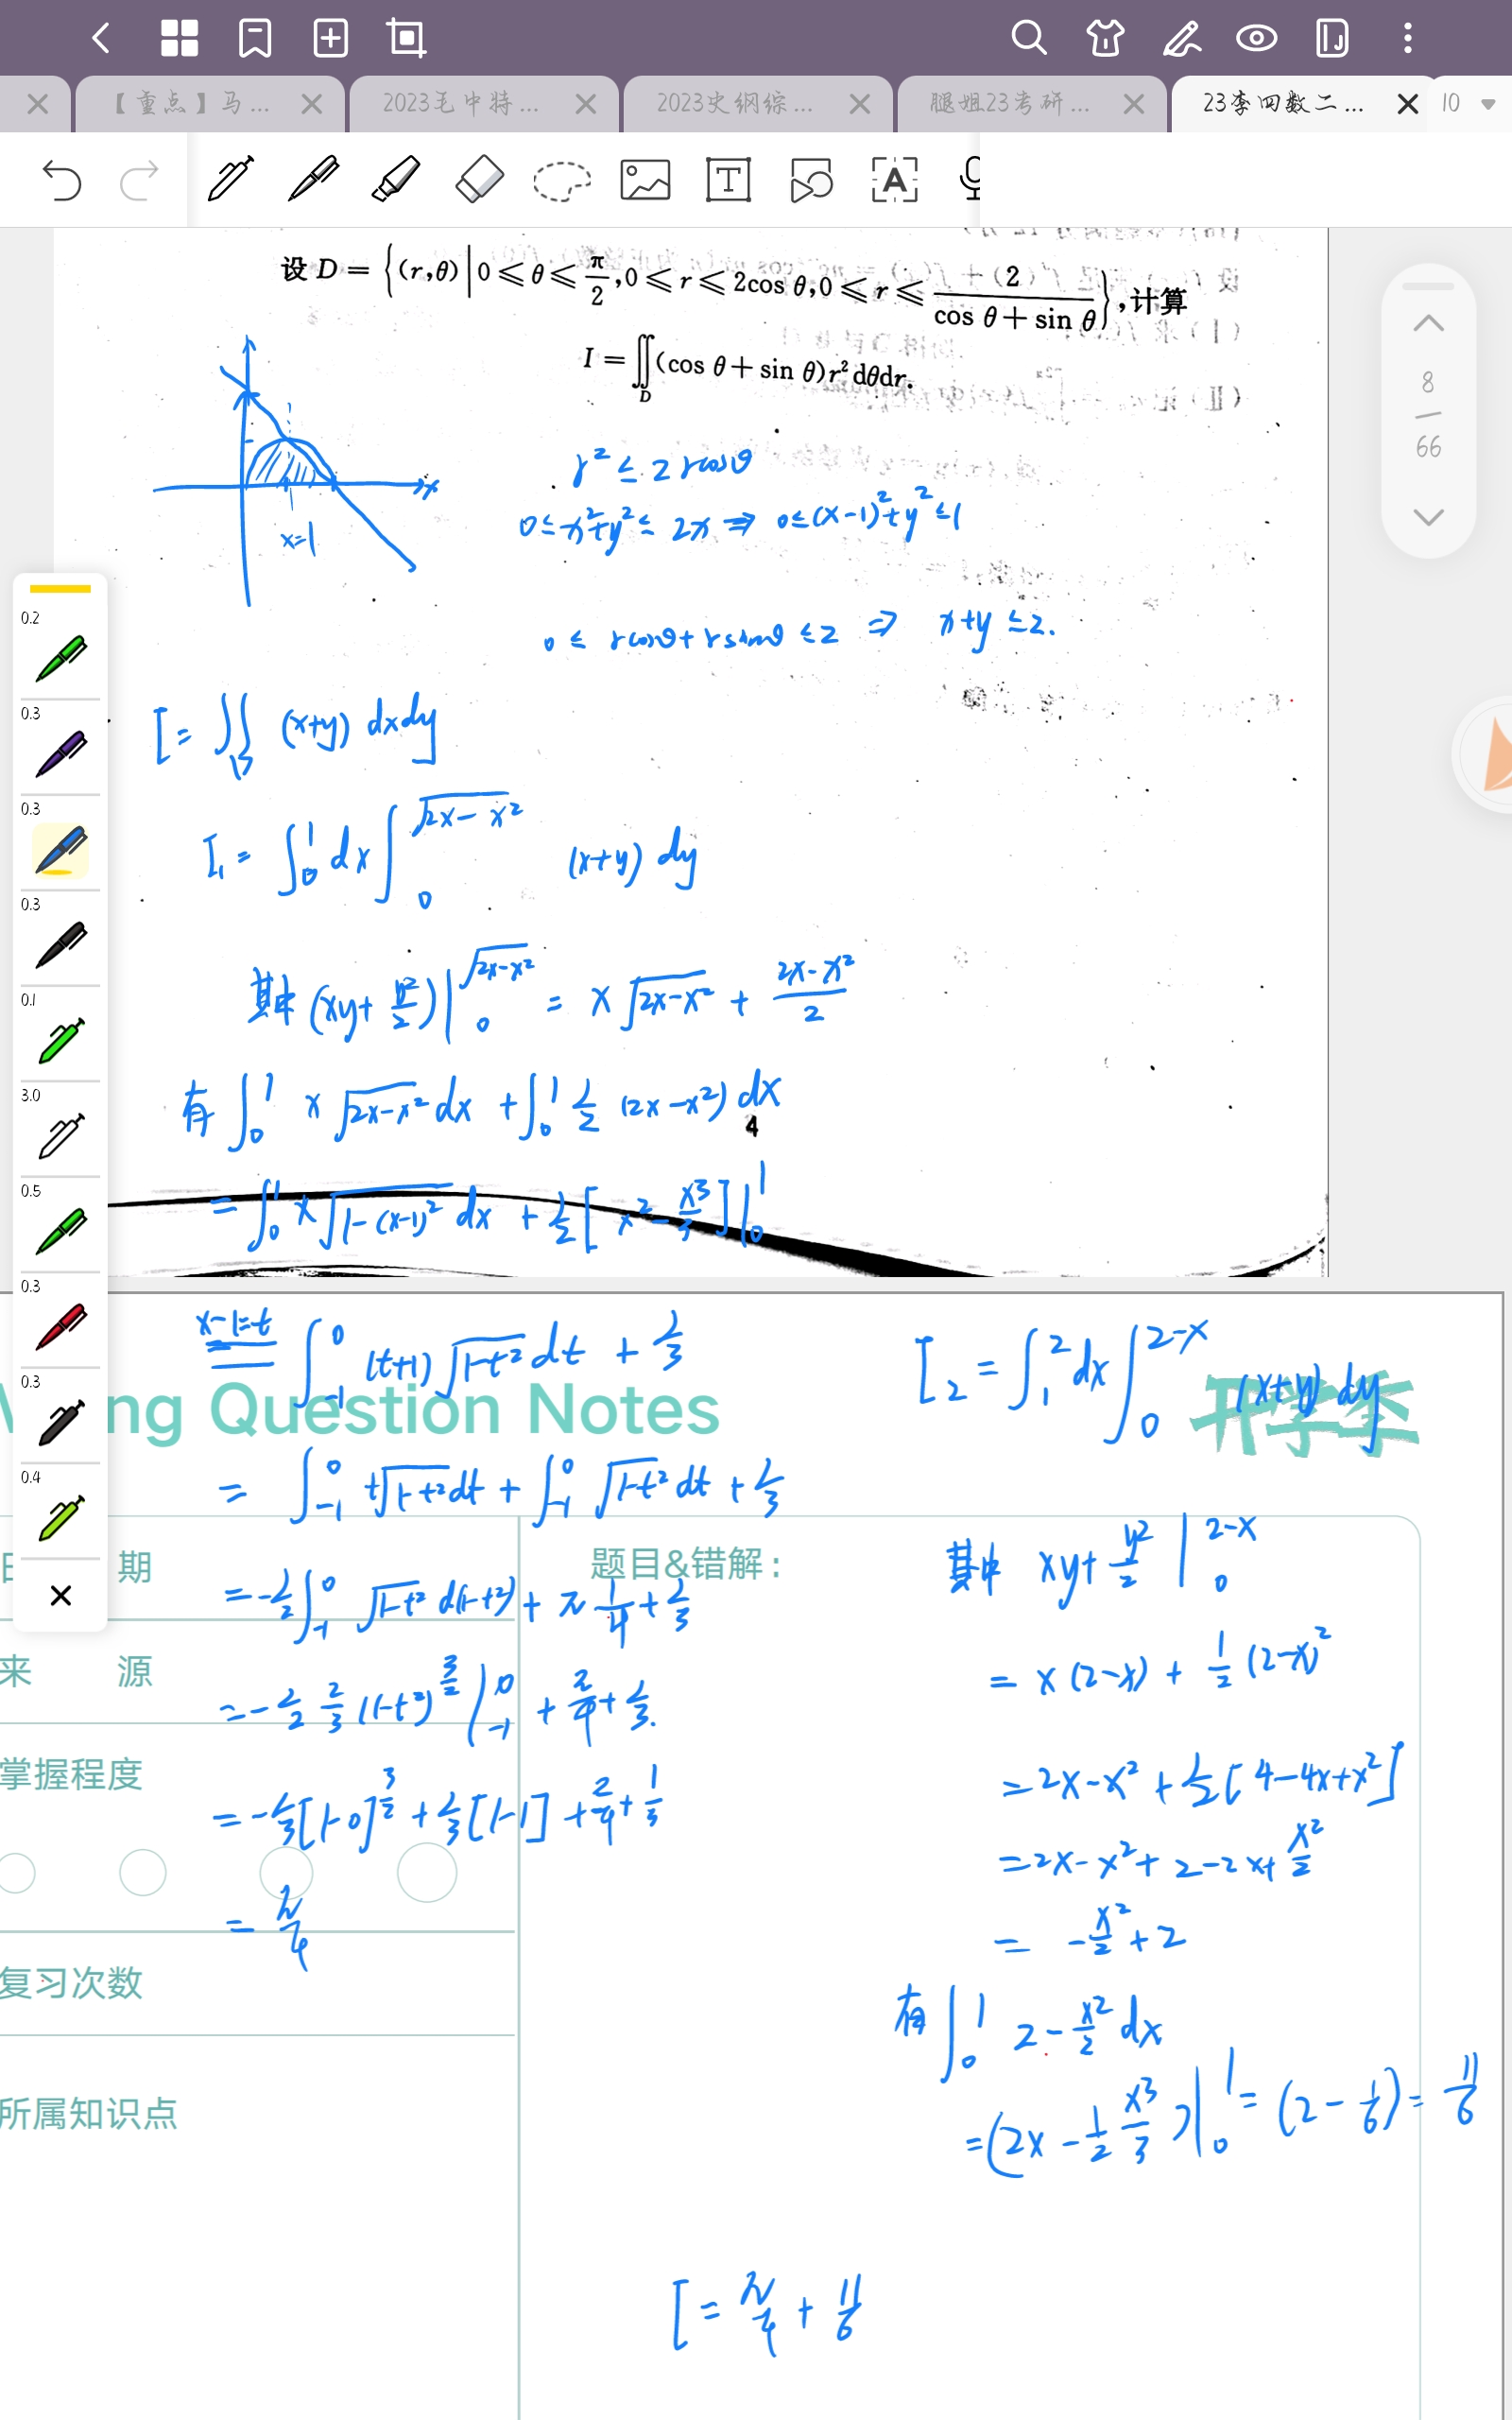 【重点】马...
2023毛中特...
2023史纲综...
腿姐23考研...
23李四数二...
10
设 D = {(r,θ)|0≤θ≤π/2,0≤r≤2cos θ,0≤r≤2/(cos θ+sin θ)},计算
I = ∬_D (cos θ+sin θ)r² dθdr.
8
66
r² ≤ 2rcosθ
0≤x²+y²≤2x ⇒ 0≤(x-1)²+y²≤1
x
x=1
0 ≤ rcosθ+rsinθ ≤2 ⇒ x+y ≤2.
I = ∬_D (x+y) dxdy
I₁ = ∫₀¹ dx ∫₀^√(2x-x²) (x+y) dy
其中 (xy+y²/2)|₀^√(2x-x²) = x√(2x-x²) + (2x-x²)/2
有 ∫₀¹ x√(2x-x²) dx + ∫₀¹ 1/2 (2x-x²) dx
4
= ∫₀¹ x√(1-(x-1)²) dx + 1/2 [x²-x³/3]|₀¹
0.2
0.3
0.3
0.3
0.1
3.0
0.5
0.3
0.3
0.4
x-1=t ∫₋₁⁰ (t+1)√(1-t²) dt + 1/3
ng Question Notes
开学季
= ∫₋₁⁰ t√(1-t²) dt + ∫₋₁⁰ √(1-t²) dt + 1/3
= -1/2 ∫₋₁⁰ √(1-t²) d(1-t²) + π 1/4 + 1/3
= -1/2 2/3 (1-t²)^(3/2) |₋₁⁰ + π/4 + 1/3.
= -1/3 [1-0]^(3/2) + 1/3 [1-1] + π/4 + 1/3
= π/4
期
来 源
掌握程度
复习次数
所属知识点
题目&错解:
I₂ = ∫₁² dx ∫₀^(2-x) (x+y) dy
其中 xy+y²/2 |₀^(2-x)
= x(2-x) + 1/2 (2-x)²
= 2x-x² + 1/2 [4-4x+x²]
= 2x-x²+2-2x+x²/2
= -x²/2 +2
有 ∫₀¹ 2-x²/2 dx
= (2x - 1/2 x³/3)|₀¹ = (2-1/6) = 11/6
I = π/4 + 11/6